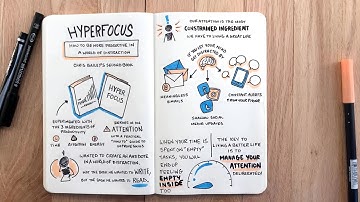 HYPERFOCUS
HOW TO BE MORE PRODUCTIVE IN
A WORLD OF DISTRACTION
CHRIS BAILEY'S SECOND BOOK
HYPER
FOCUS
EXPERIMENTED WITH
THE 3 INGREDIENTS OF
PRODUCTIVITY
TIME
ATTENTION
ENERGY
ATTENTION
WITH A PRACTICAL
GUIDE TO
WANTED TO CREATE AN ANTIDOTE
IN A WORLD OF DISTRACTION.
NOT THE BOOK HE WANTED TO WRITE,
BUT THE BOOK HE WANTED TO READ.
OUR ATTENTION IS THE MOST
CONSTRAINED INGREDIENT
WE HAVE TO LIVING A GREAT LIFE
IS YOUR MIND
MEANINGLESS
EMAILS
CONSTANT ALERTS
FROM YOUR PHONE
SHARING SOCIAL
MEDIA UPDATES
WHEN YOUR TIME IS
SPENT ON "EMPTY"
TASKS, YOU WILL
END UP
FEELING
EMPTY
INSIDE
TOO
THE KEY TO
LIVING A BETTER LIFE IS TO
MANAGE YOUR
ATTENTION
DELIBERATELY!